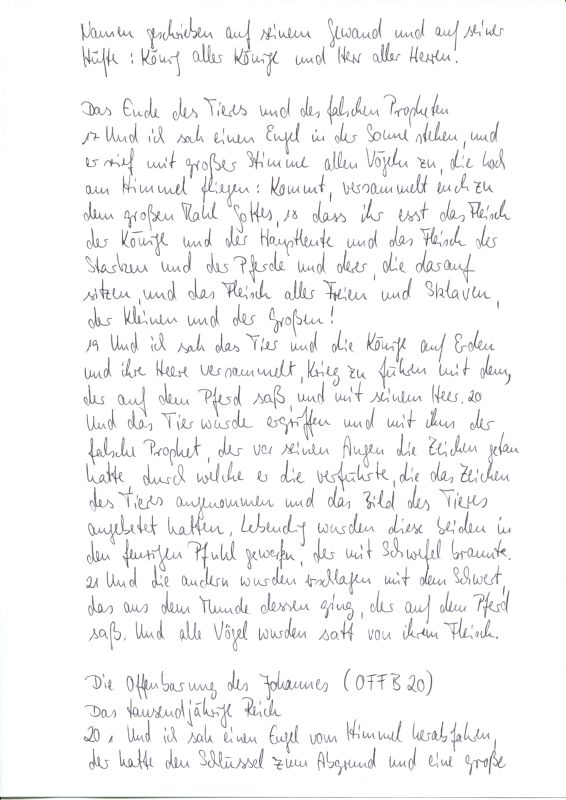 Namen geschrieben auf seinem Gewand und auf seiner
Hüfte : König aller Könige und Herr aller Herren.
Das Ende des Tieres und des falschen Propheten
17 Und ich sah einen Engel in der Sonne stehen, und
er rief mit großer Stimme allen Vögeln zu, die hoch
am Himmel fliegen : Kommt, versammelt euch zu
dem großen Mahl Gottes, 18 dass ihr esst das Fleisch
der Könige und der Hauptleute und das Fleisch der
Starken und der Pferde und derer, die darauf
sitzen, und das Fleisch aller Freien und Sklaven,
der Kleinen und der Großen!
19 Und ich sah das Tier und die Könige auf Erden
und ihre Heere versammelt, Krieg zu führen mit dem,
der auf dem Pferd saß, und mit seinem Heer. 20
Und das Tier wurde ergriffen und mit ihm der
falsche Prophet, der vor seinen Augen die Zeichen getan
hatte, durch welche er die verführte, die das Zeichen
des Tieres angenommen und das Bild des Tieres
angebetet hatten. Lebendig wurden diese beiden in
den feurigen Pfuhl geworfen, der mit Schwefel brannte.
21 Und die andern wurden erschlagen mit dem Schwert,
das aus dem Munde dessen ging, der auf dem Pferd
saß. Und alle Vögel wurden satt von ihrem Fleisch.
Die Offenbarung des Johannes (OFFB 20)
Das tausendjährige Reich
20 1 Und ich sah einen Engel vom Himmel herabfahren,
der hatte den Schlüssel zum Abgrund und eine große